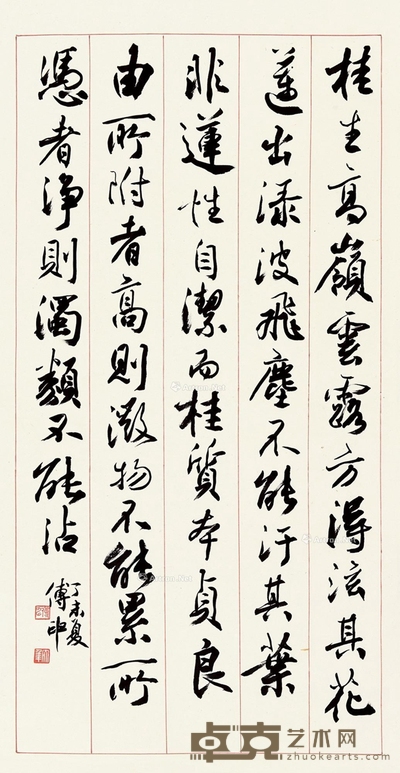 桂生高嶺雲露方得泫其花
蓮出渌波飛塵不能汙其葉
非蓮性自潔而桂質本貞良
由所附者高則微物不能累所
憑者浄則濁類不能沾
丁未夏
傅
卓克艺术网
zhuokearts.com